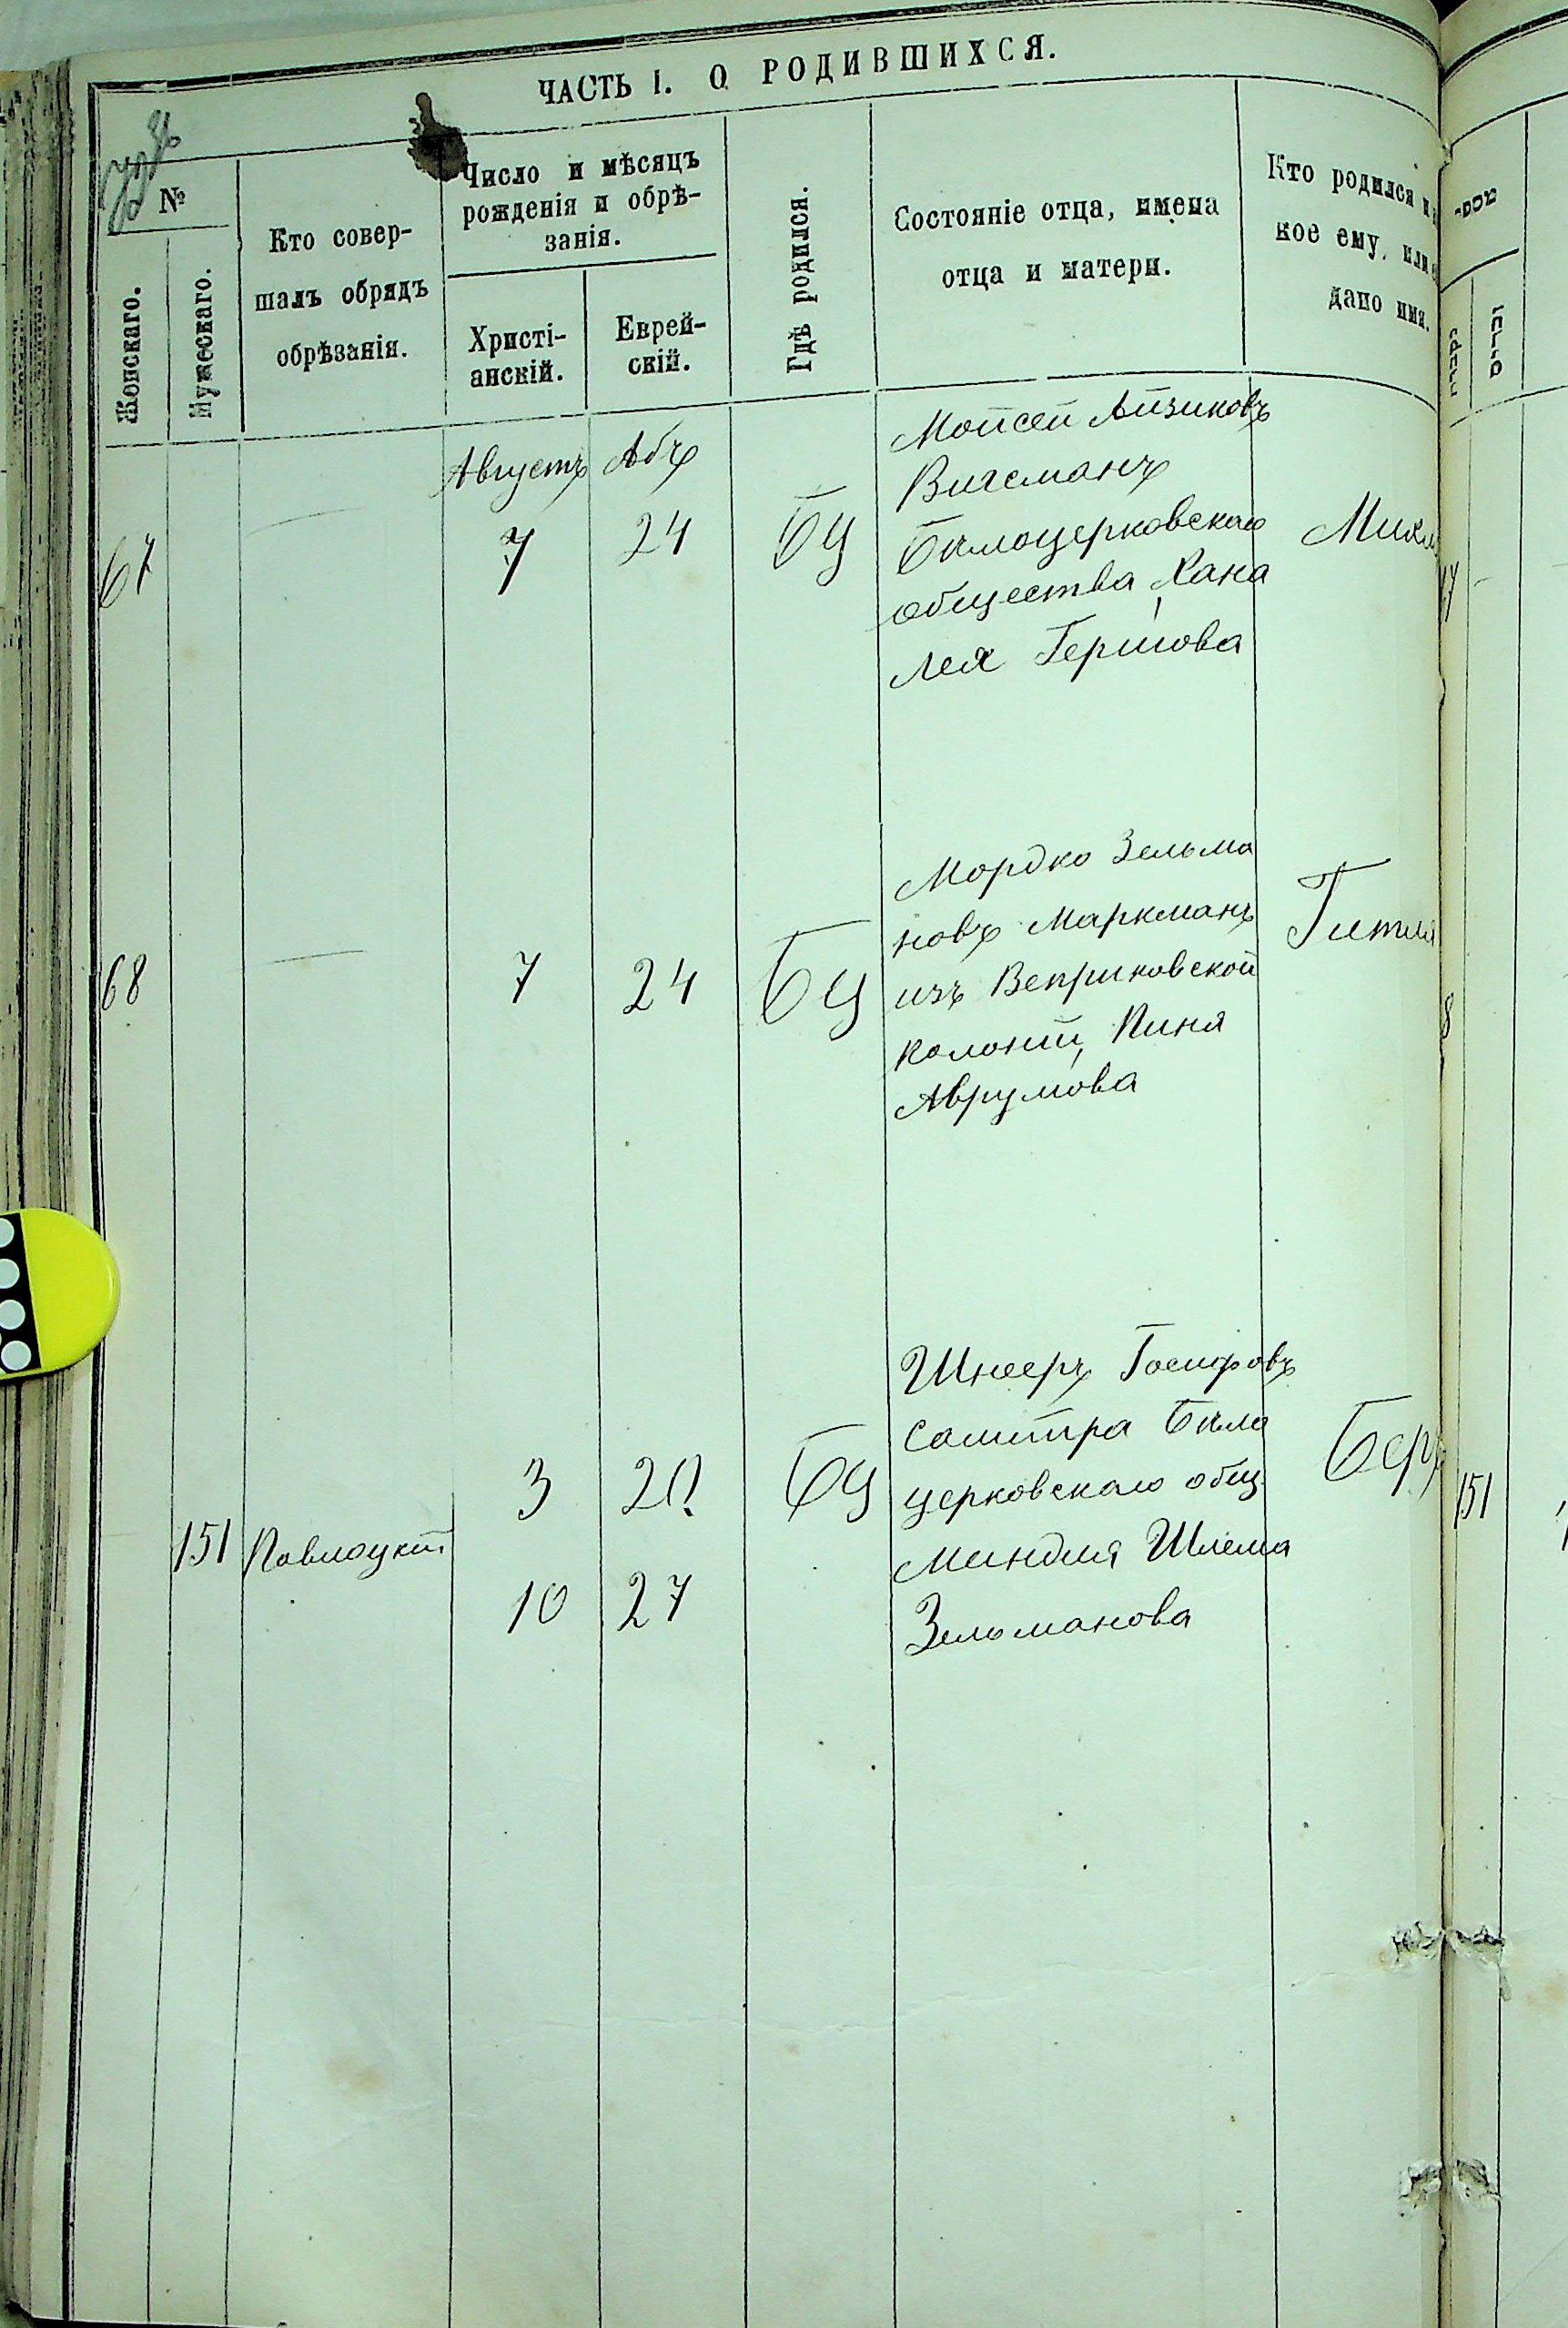 ЧАСТЬ I. О РОДИВШИХСЯ.
№
Женскаго.
Мужескаго.
Кто совер-
шалъ обрядъ
обрѣзанія.
Число и мѣсяцъ
рожденія и обрѣ-
занія.
Христі-
анскій.
Еврей-
скій.
Гдѣ родился.
Состояніе отца, имена
отца и матери.
Кто родился и
кое ему, или
дано имя.
Августъ Абъ
67 — 7 24 БЦ
Мойсей Айзиковъ
Вигсманъ
Бѣлоцерковскаго
общества, Хана
Лея Гершова
68 — 7 24 БЦ
Мордко Зельма
новъ Маркманъ
изъ Веприковской
колоніи, Пиня
Аврумова
Гитля
151 Паволоцкій
3 20 БЦ
10 27
Шнееръ
Бѣло
церковскаго общ.
Миндля Шлема
Зельманова
Бер
151